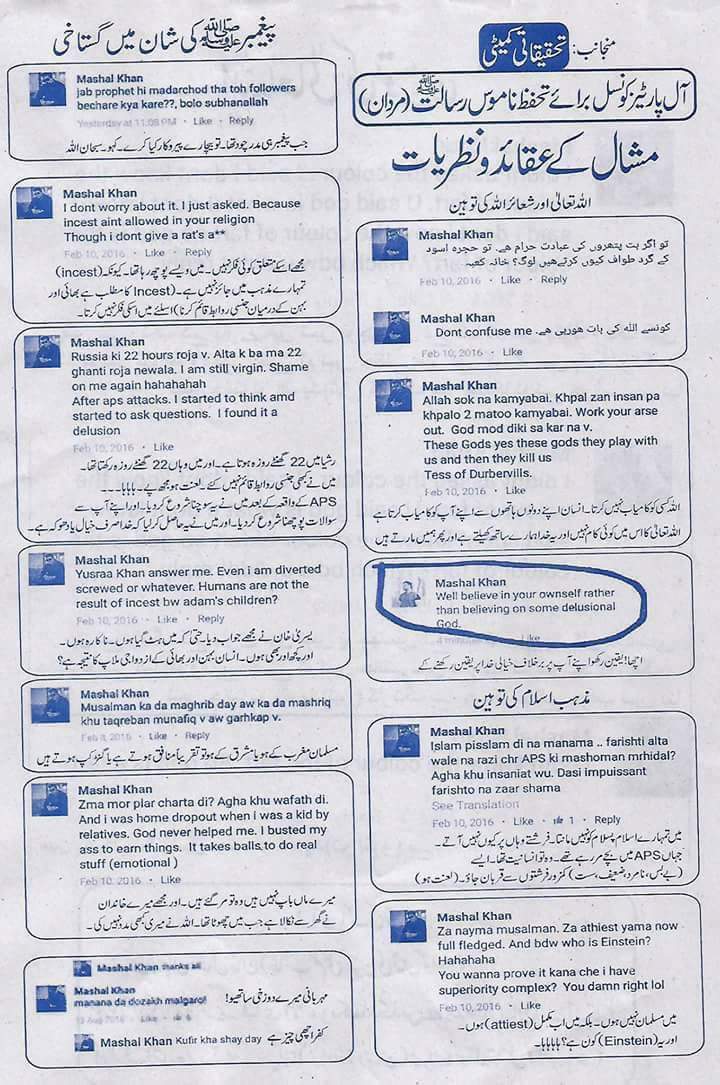 منجانب: تحقیقاتی کمیٹی
آل پارٹیز کونسل برائے تحفظ ناموس رسالت ﷺ (مردان)
مشال کے عقائد و نظریات
اللہ تعالیٰ اور شعائر اللہ کی توہین
Mashal Khan
تو اگر بت پتھروں کی عبادت حرام ہے. تو حجره اسود
کے گرد طواف کیوں کرتےھیں لوگ؟ خانہ کعبہ
Feb 10, 2016 · Like · Reply
Mashal Khan
Dont confuse me کونسے الله کی بات هورہی ھے.
Feb 10, 2016 · Like
Mashal Khan
Allah sok na kamyabai. Khpal zan insan pa
khpalo 2 matoo kamyabai. Work your arse
out. God mod diki sa kar na v.
These Gods yes these gods they play with
us and then they kill us
Tess of Durbervills.
Feb 10, 2016 · Like
اللہ کسی کو کامیاب نہیں کرتا۔ انسان اپنے دونوں ہاتھوں سے اپنے آپ کو کامیاب کرتا ہے
اللہ تعالیٰ کا اس میں کوئی کام نہیں اور یہ خدا ہمارے ساتھ کھیلتے ہے اور پھر ہمیں مارتے ہیں
Mashal Khan
Well believe in your ownself rather
than believing on some delusional
God.
4 minutes · Like
اچھا! یقین رکھو اپنے آپ پر برخلاف خیالی خدا پر یقین رکھنے کے
مذہب اسلام کی توہین
Mashal Khan
Islam pisslam di na manama .. farishti alta
wale na razi chr APS ki mashoman mrhidal?
Agha khu insaniat wu. Dasi impuissant
farishto na zaar shama
See Translation
Feb 10, 2016 · Like · 1 · Reply
میں تمہارے اسلام پسلام کو نہیں مانتا۔ فرشتے وہاں پر کیوں نہیں آتے۔
جہاں APS میں بچے مر رہے تھے۔ وہ تو انسانیت تھا۔ ایسے
(بے بس، نامرد، ضعیف، سست) کمزور فرشتوں سے قربان جاؤ۔ (لعنت ہو)
Mashal Khan
Za nayma musalman. Za athiest yama now
full fledged. And bdw who is Einstein?
Hahahaha
You wanna prove it kana che i have
superiority complex? You damn right lol
Feb 10, 2016 · Like
میں مسلمان نہیں ہوں۔ بلکہ میں اب مکمل (attiest) ہوں۔
اور یہ (Einstein) کون ہے؟ ہاہاہاہا۔
پیغمبر ﷺ کی شان میں گستاخی
Mashal Khan
jab prophet hi madarchod tha toh followers
bechare kya kare??, bolo subhanallah
Yesterday at 11:08 PM · Like · Reply
جب پیغمبر ہی مدر چود تھا۔ تو بیچارے پیروکار کیا کرے۔ کہو۔ سبحان اللہ
Mashal Khan
I dont worry about it. I just asked. Because
incest aint allowed in your religion
Though i dont give a rat's a**
Feb 10, 2016 · Like · Reply
مجھے اسکے متعلق کوئی فکر نہیں۔ میں ویسے پوچھ رہا تھا۔ کیونکہ (incest)
تمہارے مذہب میں جائز نہیں ہے۔ (Incest کا مطلب ہے بھائی اور
بہن کے درمیان جنسی روابط قائم کرنا) اسلئے میں اسکی فکر نہیں کرتا۔
Mashal Khan
Russia ki 22 hours roja v. Alta k ba ma 22
ghanti roja newala. I am still virgin. Shame
on me again hahahahah
After aps attacks. I started to think amd
started to ask questions. I found it a
delusion
Feb 10, 2016 · Like
رشیا میں 22 گھنٹے روزہ ہوتا ہے۔ اور میں وہاں 22 گھنٹے روزہ رکھتا تھا۔
میں نے کبھی جنسی روابط قائم نہیں کئے۔ لعنت ہو مجھ پے۔ ہاہاہا۔۔۔
APS کے واقعہ کے بعد میں نے یہ سوچنا شروع کر دیا۔ اور اپنے آپ سے
سوالات پوچھنا شروع کر دیا۔ اور میں نے یہ حاصل کر لیا کہ خدا صرف خیال یا دھوکہ ہے۔
Mashal Khan
Yusraa Khan answer me. Even i am diverted
screwed or whatever. Humans are not the
result of incest bw adam's children?
Feb 10, 2016 · Like
یسریٰ خان نے مجھے جواب دیا۔ حتیٰ کہ میں ہٹ گیا ہوں۔ ناکارہ ہوں۔
اور کچھ اور بھی ہوں۔ انسان بہن اور بھائی کے ازدواجی ملاپ کا نتیجہ ہے؟
Mashal Khan
Musalman ka da maghrib day aw ka da mashriq
khu taqreban munafiq v aw garhkap v.
Feb 8, 2016 · Like · Reply
مسلمان مغرب کے ہو یا مشرق کے ہو تو تقریباً منافق ہوتے ہے یا گنڑ کپ ہوتے ہیں
Mashal Khan
Zma mor plar charta di? Agha khu wafath di.
And i was home dropout when i was a kid by
relatives. God never helped me. I busted my
ass to earn things. It takes balls to do real
stuff (emotional )
Feb 10, 2016 · Like
میرے ماں باپ نہیں ہیں وہ تو مر گئے ہیں۔ اور مجھے میرے خاندان
نے گھر سے نکالا ہے جب میں چھوٹا تھا۔ اللہ نے میری کبھی مدد نہیں کی۔
Mashal Khan thanks all
Mashal Khan
manana da dozakh malgaro!
13 Aug 2016 · Like · 6
مہربانی میرے دوزخی ساتھیو!
Mashal Khan Kufir kha shay day
کفر اچھی چیز ہے